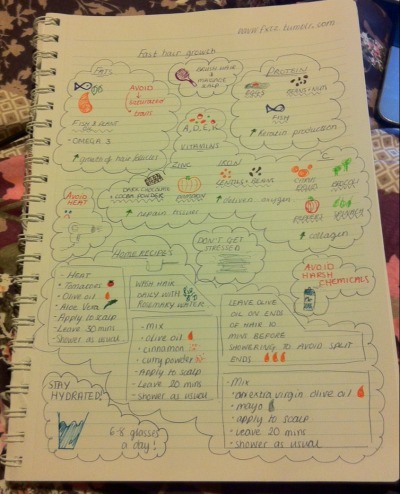 Fast hair growth
FATS
AVOID
saturated
FISH & WALNUT
OMEGA 3
growth of hair follicles
BRUSH HAIR
&
MASSAGE
SCALP
A, D, E, K
VITAMINS
PROTEIN
EGGS
FISH
Keratin production
AVOID
HEAT
ZINC
DARK CHOCOLATE
+ COCOA POWDER
PUMPKIN
repair tissues
IRON
LENTILS + BEANS
deliver oxygen
C
CITRUS
PEPPERS
collagen
HOME RECIPES
- HEAT
Tomatoes
Olive oil
Aloe Vera
Apply to scalp
Leave 30 mins
Shower as usual
WASH HAIR
DAILY WITH
ROSEMARY WATER
- MIX
Olive oil
cinnamon
curry powder
Apply to scalp
Leave 20 mins
Shower as usual
DON'T GET
STRESSED
AVOID
HARSH
CHEMICALS
LEAVE OLIVE
OIL ON ENDS
OF HAIR 10
MINS BEFORE
SHOWERING TO AVOID SPLIT
ENDS
MIX
extra virgin olive oil
mayo
apply to scalp
Leave 20 mins
shower as usual
STAY
HYDRATED!
6-8 glasses
a day!